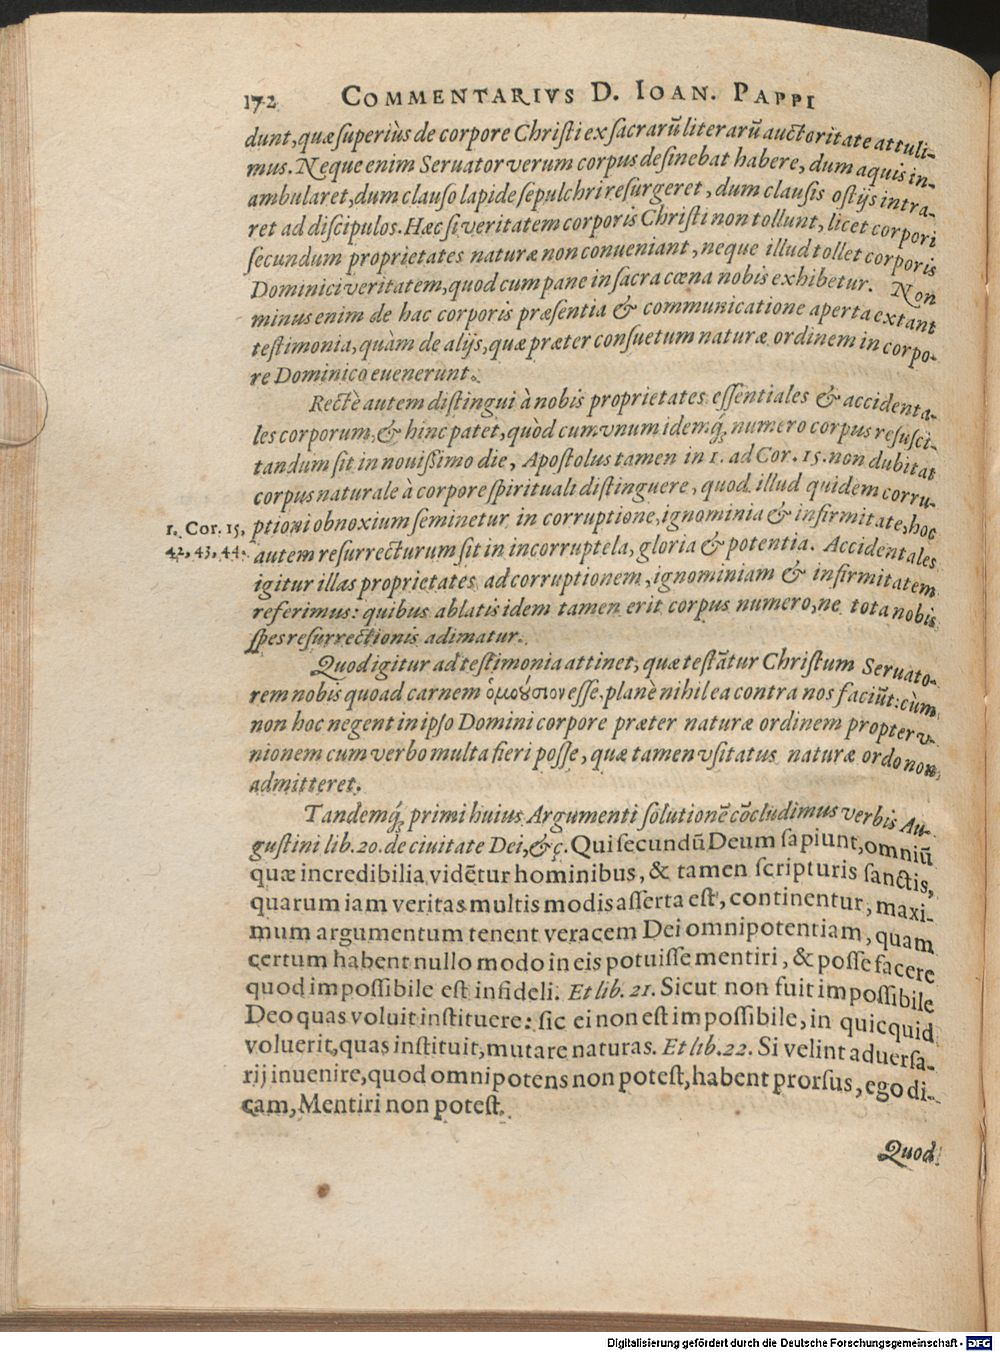 172 COMMENTARIVS D. IOAN. PAPPI
dunt, quæ superiùs de corpore Christi ex sacrarũ literarũ auctoritate attuli-
mus. Neque enim Seruator verum corpus desinebat habere, dum aquis in-
ambularet, dum clauso lapide sepulchri resurgeret, dum clausis ostijs intra-
ret ad discipulos. Hæc si veritatem corporis Christi non tollunt, licet corpori
secundum proprietates naturæ non conueniant, neque illud tollet corporis
Dominici veritatem, quod cum pane in sacra cœna nobis exhibetur. Non
minus enim de hac corporis præsentia & communicatione aperta extant
testimonia, quàm de alijs, quæ præter consuetum naturæ ordinem in corpo-
re Dominico euenerunt.
Rectè autem distingui à nobis proprietates essentiales & accidenta-
les corporum, & hinc patet, quòd cum vnum idemq́; numero corpus resusci-
tandum sit in nouissimo die, Apostolus tamen in 1. ad Cor. 15. non dubitat
corpus naturale à corpore spirituali distinguere, quod illud quidem corru-
1. Cor. 15, ptioni obnoxium seminetur in corruptione, ignominia & infirmitate, hoc
42, 43, 44. autem resurrecturum sit in incorruptela, gloria & potentia. Accidentales
igitur illas proprietates ad corruptionem, ignominiam & infirmitatem
referimus: quibus ablatis idem tamen erit corpus numero, ne tota nobis
spes resurrectionis adimatur.
Quod igitur ad testimonia attinet, quæ testãtur Christum Seruato-
rem nobis quoad carnem ὁμοούσιον esse, planè nihil ea contra nos faciũt: cùm
non hoc negent in ipso Domini corpore præter naturæ ordinem propter v-
nionem cum verbo multa fieri posse, quæ tamen vsitatus naturæ ordo non
admitteret.
Tandemq́; primi huius Argumenti solutionẽ cõcludimus verbis Au-
gustini lib. 20. de ciuitate Dei, &c. Qui secundũ Deum sapiunt, omniũ
quæ incredibilia vidẽtur hominibus, & tamen scripturis sanctis,
quarum iam veritas multis modis asserta est, continentur, maxi-
mum argumentum tenent veracem Dei omnipotentiam, quam
certum habent nullo modo in eis potuisse mentiri, & posse facere
quod impossibile est infideli. Et lib. 21. Sicut non fuit impossibile
Deo quas voluit instituere: sic ei non est impossibile, in quicquid
voluerit, quas instituit, mutare naturas. Et lib. 22. Si velint aduersa-
rij inuenire, quod omnipotens non potest, habent prorsus, ego di-
cam, Mentiri non potest.
Quod
Digitalisierung gefördert durch die Deutsche Forschungsgemeinschaft - DFG